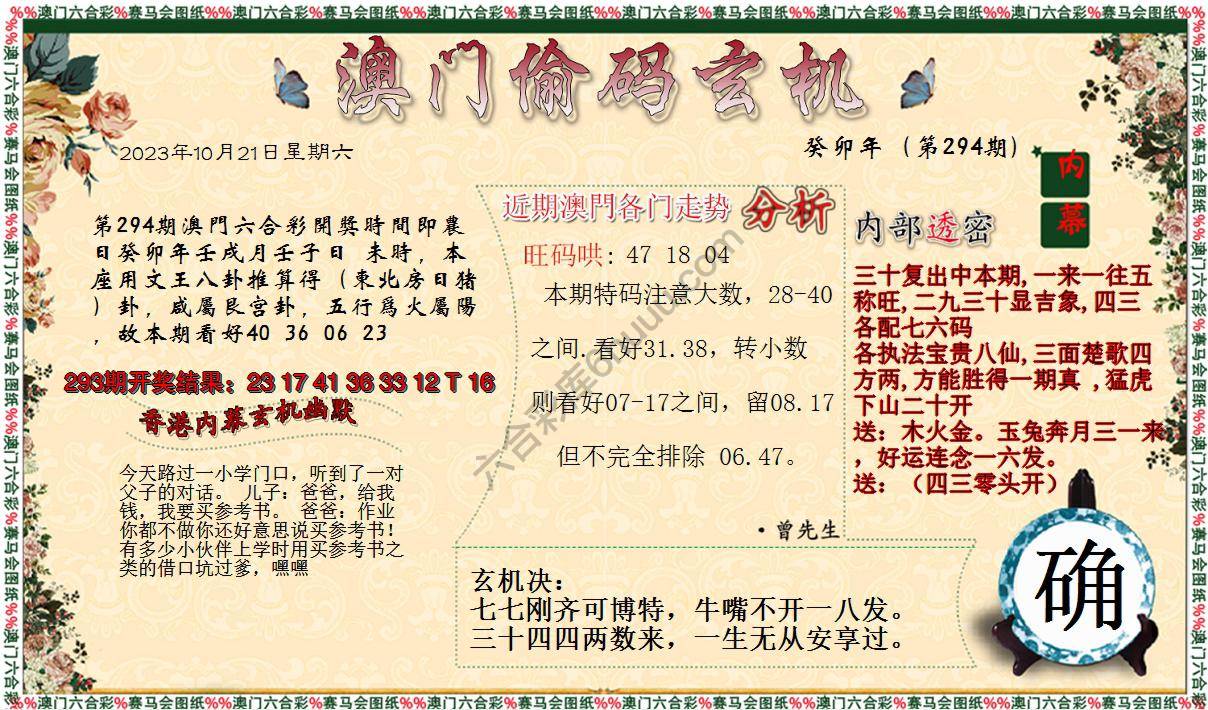 %%澳门六合彩%赛马会图纸%%澳门六合彩%赛马会图纸%%澳门六合彩%赛马会图纸%%澳门六合彩%赛马会图纸%%澳门六合彩%赛马会图纸%%
澳门偷码玄机
2023年10月21日星期六
癸卯年（第294期）
内
幕
第294期澳門六合彩開獎時間即農
日癸卯年壬戌月壬子日 未時，本
座用文王八卦推算得（東北房日猪
）卦，咸屬艮宫卦，五行爲火屬陽
，故本期看好40 36 06 23
293期开奖结果：23 17 41 36 33 12 T 16
香港内幕玄机幽默
今天路过一小学门口，听到了一对
父子的对话。 儿子：爸爸，给我
钱，我要买参考书。 爸爸：作业
你都不做你还好意思说买参考书！
有多少小伙伴上学时用买参考书之
类的借口坑过爹，嘿嘿
近期澳門各门走势 分析
旺码哄: 47 18 04
本期特码注意大数，28-40
之间.看好31.38，转小数
则看好07-17之间，留08.17
但不完全排除 06.47。
·曾先生
内部透密
三十复出中本期,一来一往五
称旺,二九三十显吉象,四三
各配七六码
各执法宝贵八仙,三面楚歌四
方两,方能胜得一期真 ,猛虎
下山二十开
送：木火金。玉兔奔月三一来
，好运连念一六发。
送：（四三零头开）
玄机决：
七七刚齐可博特，牛嘴不开一八发。
三十四四两数来，一生无从安享过。
确
%%澳门六合彩%赛马会图纸%%澳门六合彩%赛马会图纸%%澳门六合彩%赛马会图纸%%澳门六合彩%赛马会图纸%%澳门六合彩%赛马会图纸%%